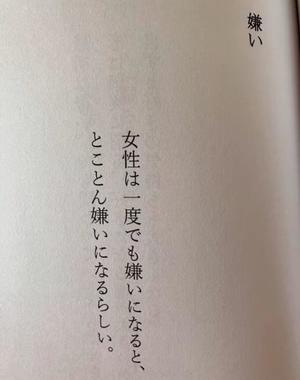 嫌い
女性は一度でも嫌いになると、
とことん嫌いになるらしい。